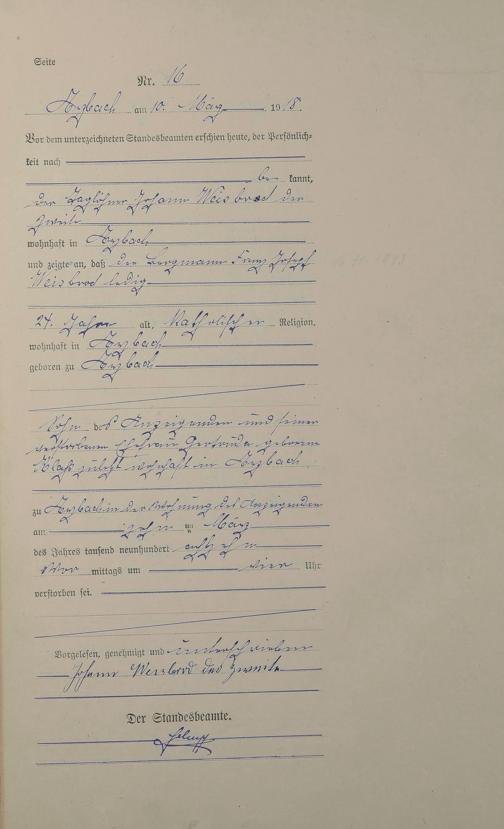 Seite
Nr. 16
am 10. März 1918.
Vor dem unterzeichneten Standesbeamten erschien heute, der Persönlich-
keit nach
be kannt,
der Taglöhner Johann Weisbrod der
Zweite
wohnhaft in
und zeigte an, daß der Bergmann Franz Joseph
Weisbrod ledig
24. Jahre alt, Katholischer Religion,
wohnhaft in
geboren zu
Sohn des Anzeigenden und seiner
verstorbenen Ehefrau Gertruda geborene
zuletzt wohnhaft in
zu in der Wohnung des Anzeigenden
am zehn ten März
des Jahres tausend neunhundert achtzehn
Vor mittags um vier Uhr
verstorben sei.
Vorgelesen, genehmigt und unterschrieben
Johann Weisbrod der Zweite
Der Standesbeamte.